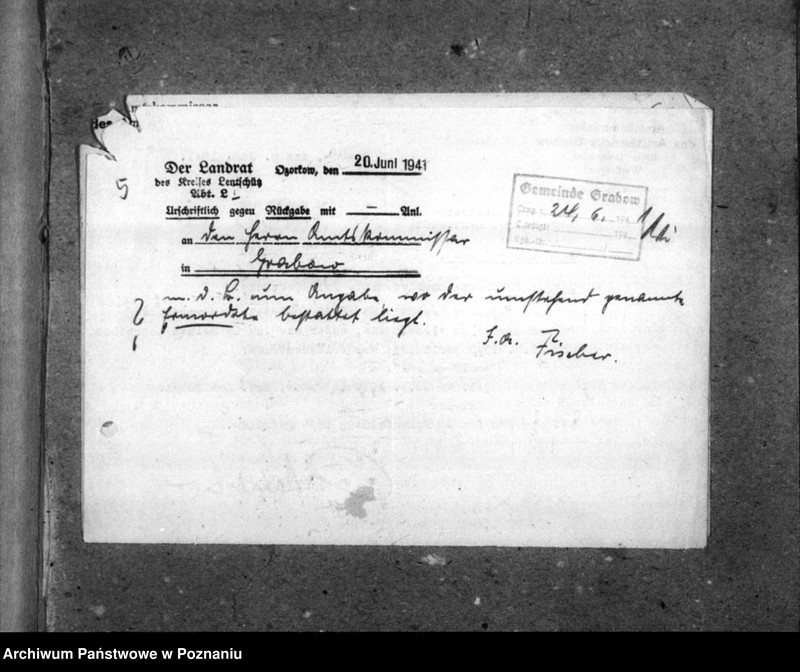 Der Landrat
des Kreises Lentschütz
Abt. L
Ozorkow, den 20. Juni 1941
Gemeinde Grabow
Eing. 24. 6. 194
Erledigt: 194
5
Urschriftlich gegen Rückgabe mit — Anl.
an den Herrn Amtskommissar
in Grabow
m. d. B. um Angabe, wo der umstehend genannte
Ermordete bestattet liegt.
I. A.
Fischer.
Archiwum Państwowe w Poznaniu